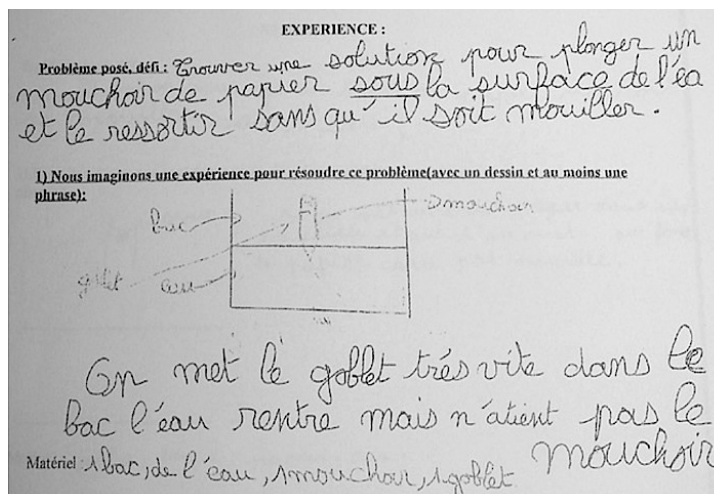 EXPERIENCE :
Problème posé, défi : Trouver une solution pour plonger un
mouchoir de papier sous la surface de l'éa
et le ressortir sans qu'il soit mouiller.
1) Nous imaginons une expérience pour résoudre ce problème(avec un dessin et au moins une
phrase):
bac
mouchoir
goblet
eau
On met le goblet trés vite dans le
bac l'eau rentre mais n'atient pas le
mouchoir
Matériel : 1 bac, de l'eau, 1 mouchoir, 1 goblet.